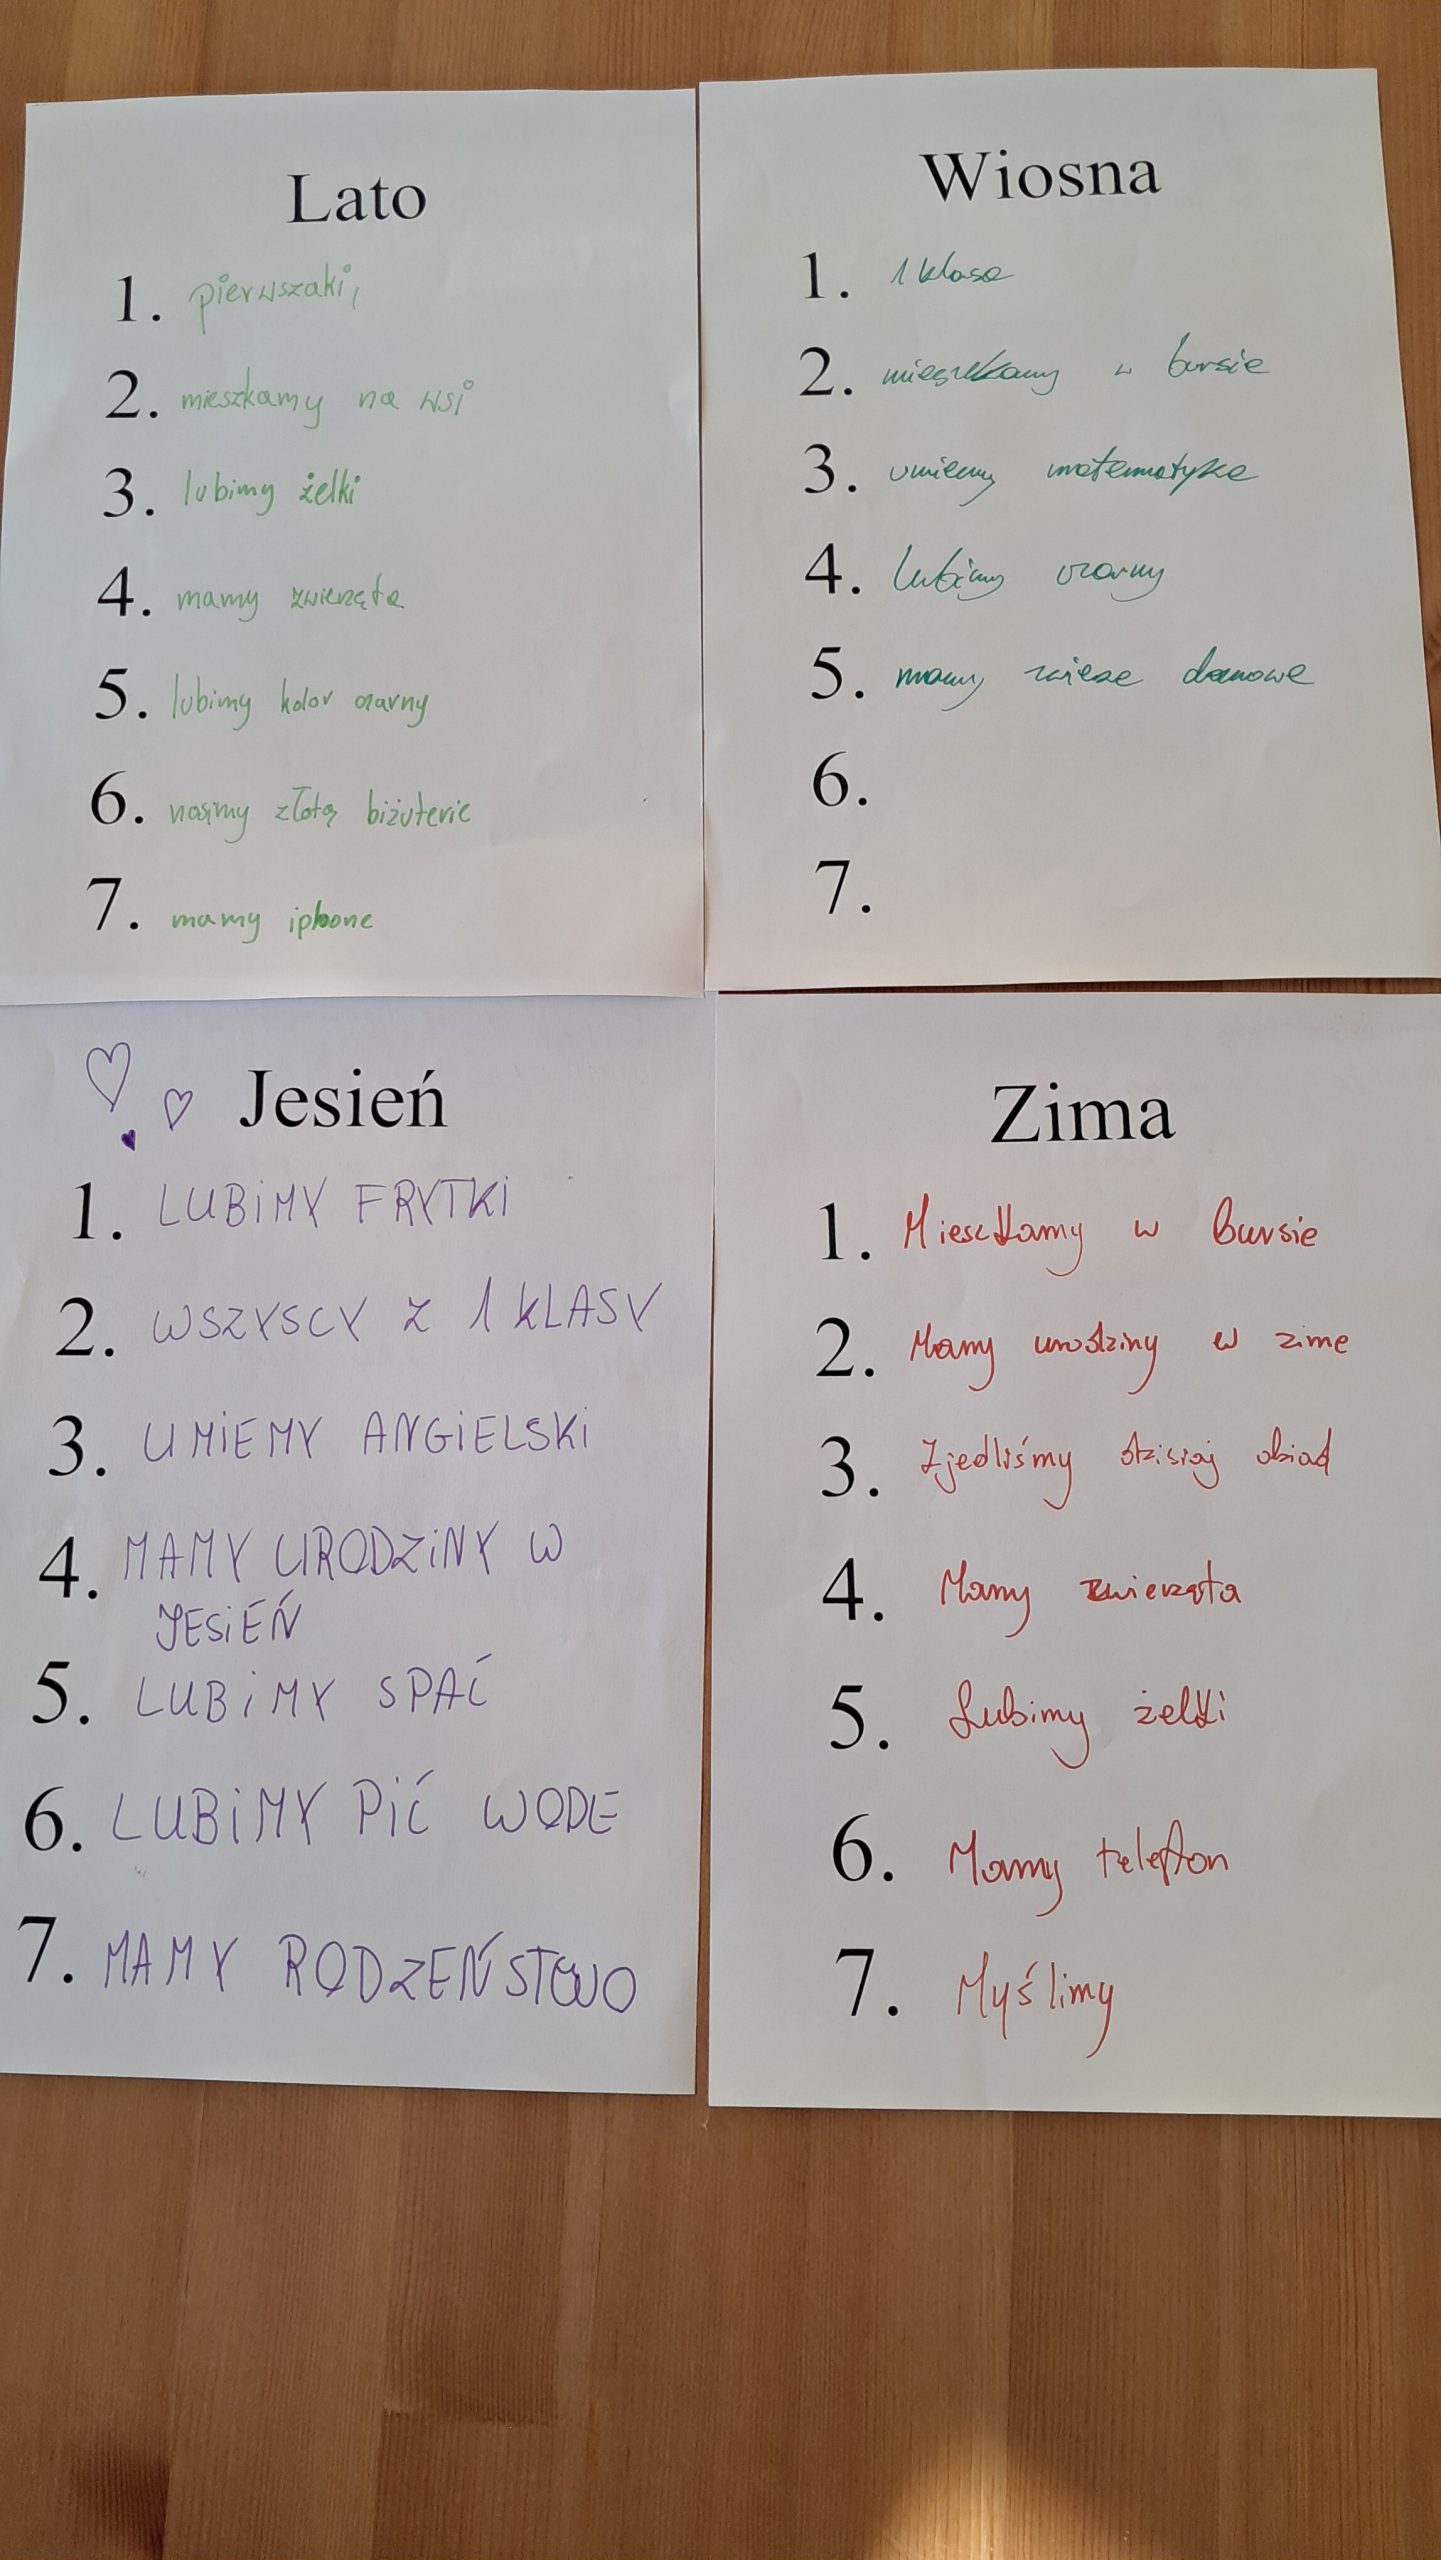 Lato
1. pierwszaki,
2. mieszkamy na wsi
3. lubimy żelki
4. mamy zwierzęta
5. lubimy kolor czarny
6. nosimy złotą biżuterie
7. mamy iphone
Wiosna
1. 1 klasa
2. mieszkamy w bursie
3. umiemy matematyke
4. lubimy czarny
5. mamy domowe
6.
7.
Jesień
1. LUBIMY FRYTKI
2. WSZYSCY Z 1 KLASY
3. UMIEMY ANGIELSKI
4. MAMY URODZINY W
JESIEŃ
5. LUBIMY SPAĆ
6. LUBIMY PIĆ WODE
7. MAMY RODZEŃSTWO
Zima
1. Mieszkamy w bursie
2. Mamy urodziny w zime
3. Zjedliśmy dzisiaj obiad
4. Mamy zwierzęta
5. Lubimy żelki
6. Mamy telefon
7. Myślimy